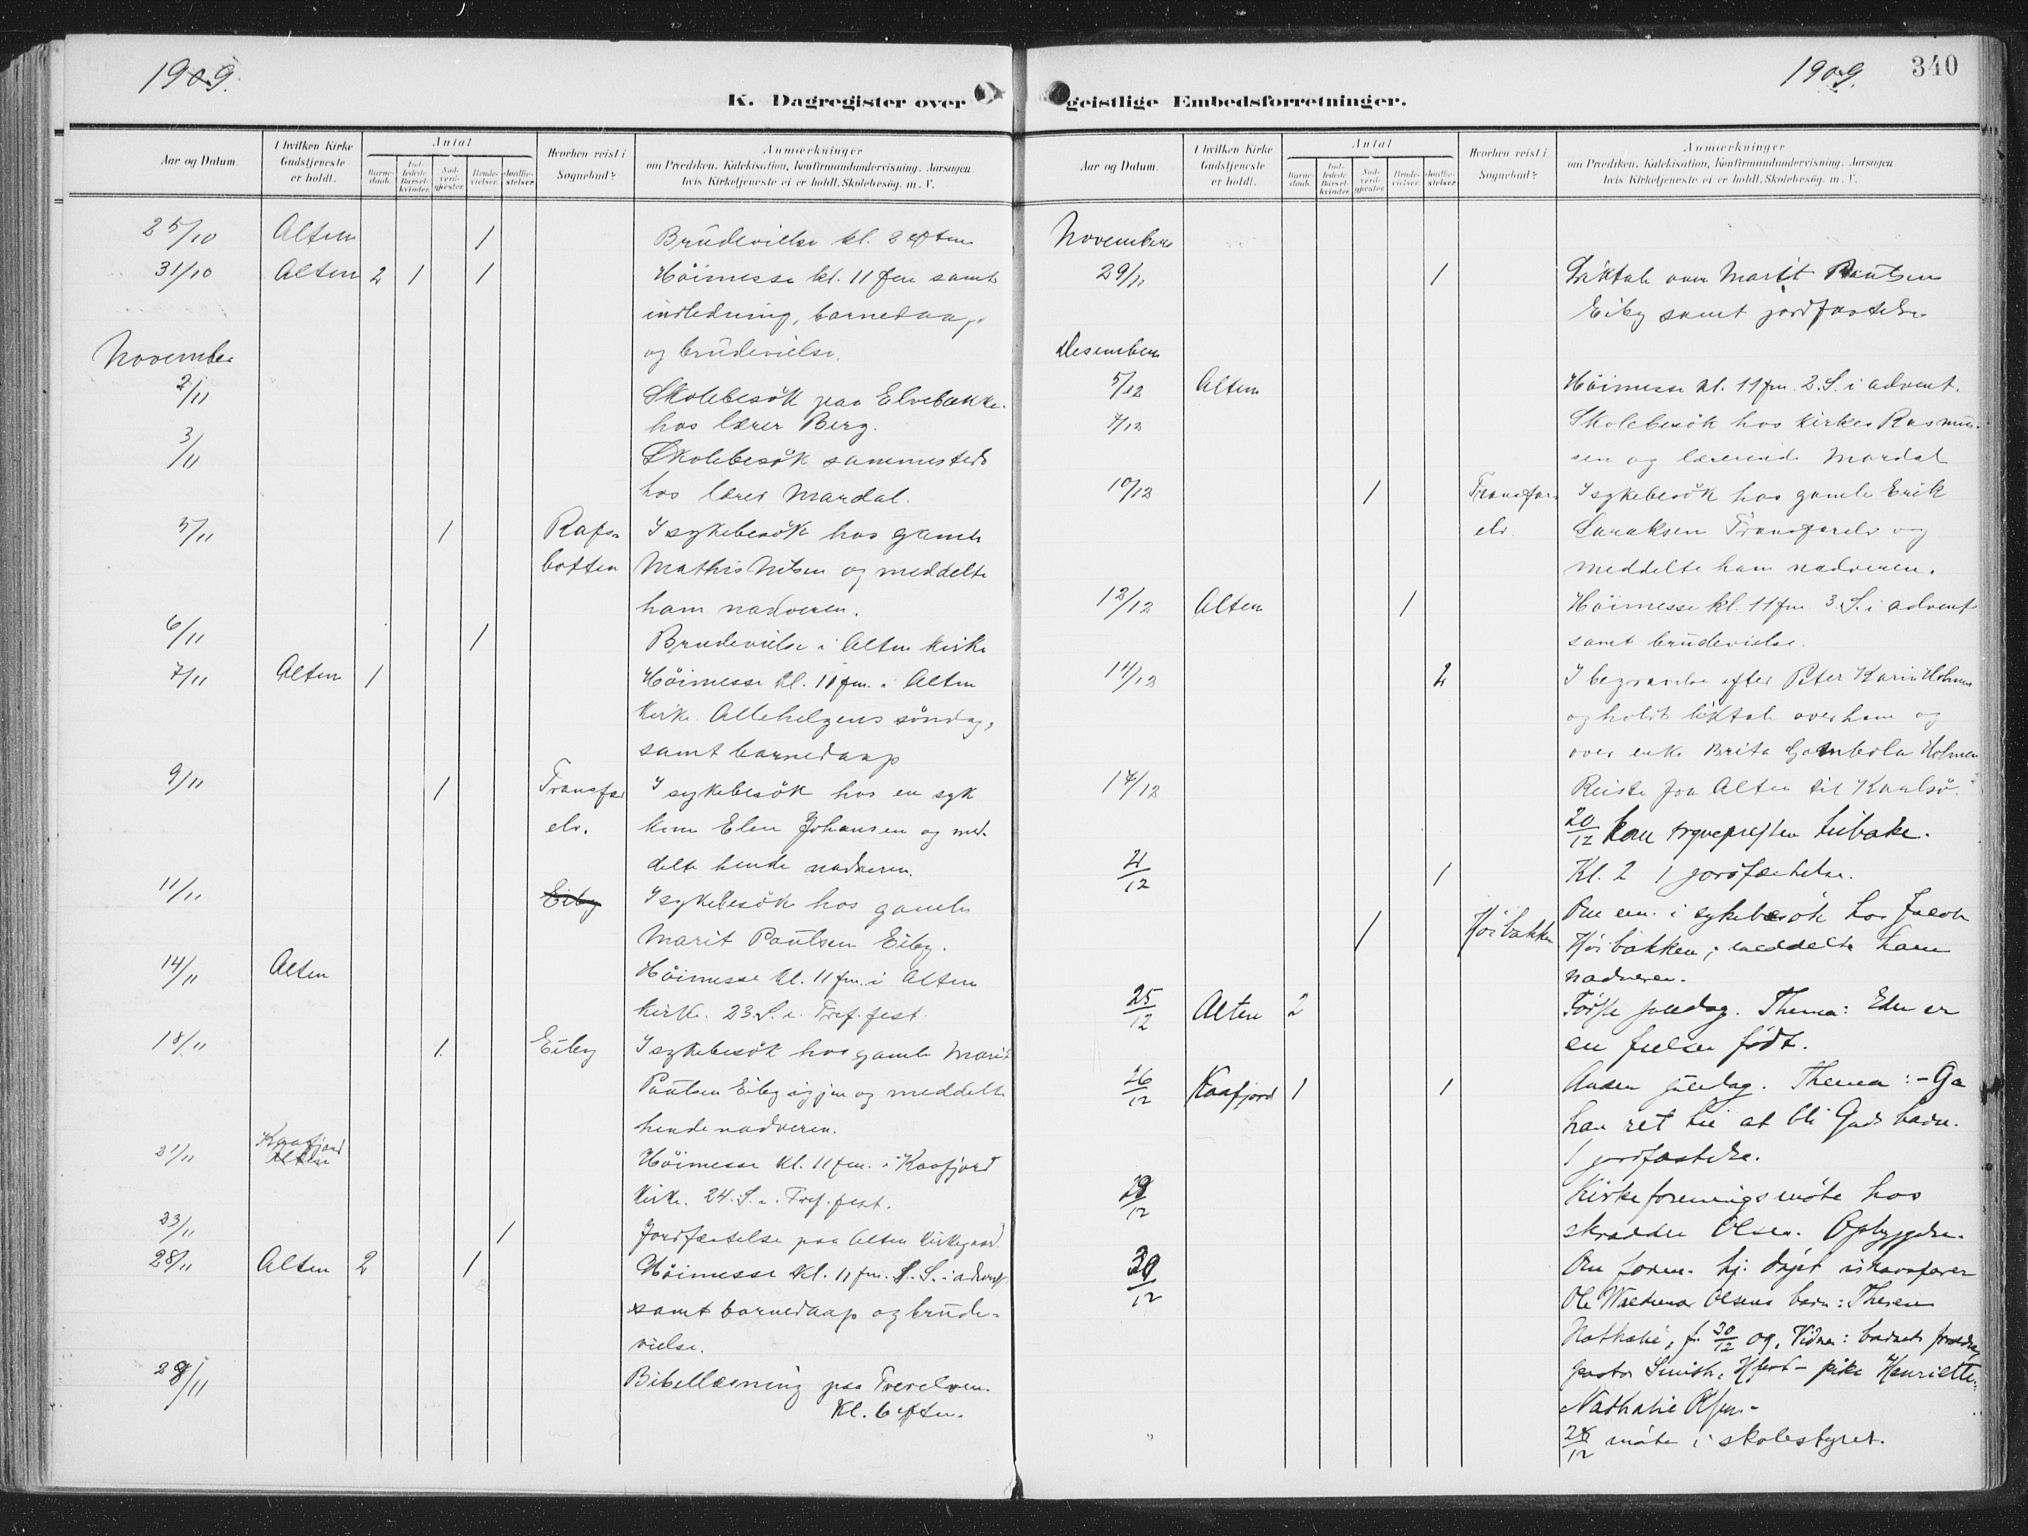 1909.
K. Dagregister over
Aar og Datum.
I hvilken Kirke Gudstjeneste er holdt.
Antal
Barnedaab.
Indledede Barselkvinder.
Nadverdgjester.
Brudevielser.
Jordfæstelser.
Hvorhen reist i Sognebud?
Anmærkninger
om Prædiken, Katekisation, Konfirmandundervisning, Aarsagen
hvis Kirketjeneste ei er holdt, Skolebesøg m. V.
25/10 Alten 1 Brudevielse kl. 8 eften
31/10 Alten 2 1 1 Höimesse kl. 11 fm samt
indledning, barnedaap
og brudevielse.
November
2/11 Skolebesök paa Elvebakke
hos lærer Berg.
3/11 Skolebesök sammesteds
hos lærer Mardal.
5/11 1 Rafsbotten I sykebesök hos gamle
Mathis Nilsen og meddelte
ham nadveren.
6/11 1 Brudevielse i Alten kirke
7/11 Alten 1 Höimesse kl. 11 fm. i Alten
kirke. Allehelgens söndag,
samt barnedaap
9/11 1 Transfarelv. I sykebesök hos en syk
kone Elen Johansen og med-
delte hende nadveren.
11/11 Eiby I sykebesök hos gamle
Marit Paulsen Eiby.
14/11 Alten Höimesse kl. 11 fm. i Alten
kirke. 23. S. e. Tref. fest.
18/11 1 Eiby I sykebesök hos gamle Marit
Paulsen Eiby igjen og meddelte
hende nadveren.
21/11 Kaafjord Alten Höimesse kl. 11 fm. i Kaafjord
kirke. 24. S. e. Tref. fest.
23/11 1 Jordfæstelse paa Alten kirkegaard.
28/11 Alten 2 1 Höimesse kl. 11 fm. 1. S. i advent
samt barnedaap og brude-
vielse.
29/11 Bibellæsning paa Tverelven
Kl. 6 eften.
1909.
340
geistlige Embedsforretninger.
Aar og Datum.
I hvilken Kirke Gudstjeneste er holdt.
Antal
Barnedaab.
Indledede Barselkvinder.
Nadverdgjester.
Brudevielser.
Jordfæstelser.
Hvorhen reist i Sognebud?
Anmærkninger
om Prædiken, Katekisation, Konfirmandundervisning, Aarsagen
hvis Kirketjeneste ei er holdt, Skolebesøg m. V.
November
29/11 1 Liktale over Marit Paulsen
Eiby samt jordfæstelse
Desember
5/12 Alten Höimesse kl. 11 fm. 2. S. i advent.
7/12 Skolebesök hos kirkes. Rasmus-
sen og lærerinde Mardal
10/12 1 Transfarelv. I sykebesök hos gamle Erik
Laraksen Transfarelv og
meddelte ham nadveren.
12/12 Alten 1 Höimesse kl. 11 fm 3. S. i advent
samt brudevielse.
14/12 2 I begravelse efter Peter Karin Holmen
og holdt liktale over ham og
over enke Brita Holmen
17/12 Reiste fra Alten til
20/12 kom sognepresten tilbake.
21/12 1 Kl. 2 1 jordfæstelse.
1 Höibakken Om em. i sykebesök hos Jacob
Höibakken; meddelte ham
nadveren.
25/12 Alten 2 Første juledag. Thema: Eder er
en frelser født.
26/12 Kaafjord 1 1 Anden juledag. Thema: - Ga
han ret til at bli Guds barn.
1 jordfæstelse.
29/12 Kirkeforeningsmöte hos
skrædder Olsen. Opbyggelse.
30/12 Om form. hj. døpt ishavsfarer
Ole Waldemar Olsens barn: Therese
Nathalie, f. 20/12 09, Vidner: barnets forældre,
pastor Smith, pike Henriette
Nathalie
28/12 möte i skolestyret.